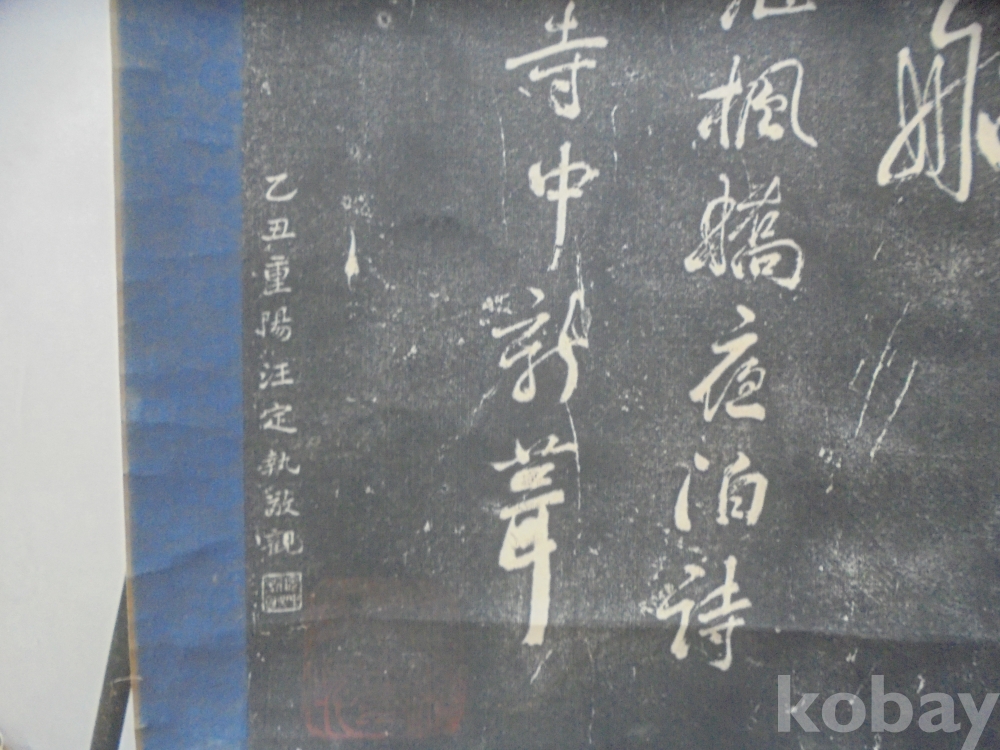 楓橋夜泊詩
寺中新葺
乙丑重陽汪定執敬觀
kobay